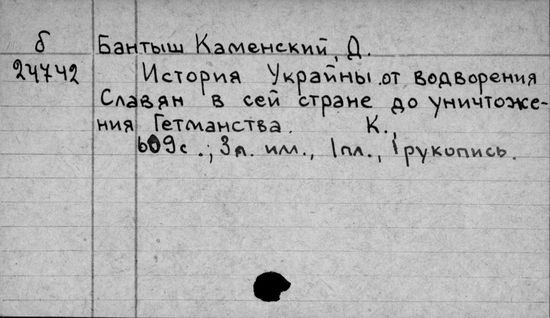 б Бантыш Каменский, Д.
24742 История Украйны от водворения
Славян в сей стране до уничтоже-
ния Гетманства. К.,
609с.; 3л. им., 1пл., 1рукопись.